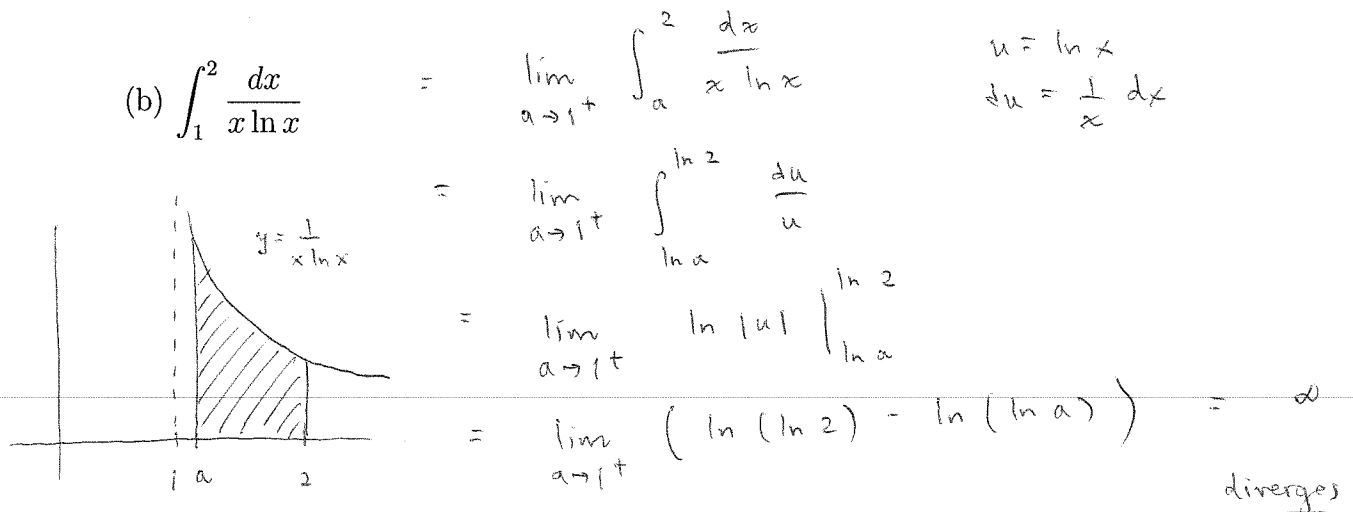 (b) ∫_1^2 dx/(x ln x) = lim_{a→1⁺} ∫_a^2 dx/(x ln x)
u = ln x
du = 1/x dx
= lim_{a→1⁺} ∫_{ln a}^{ln 2} du/u
y = 1/(x ln x)
= lim_{a→1⁺} ln |u| |_{ln a}^{ln 2}
= lim_{a→1⁺} ( ln (ln 2) - ln (ln a) ) = ∞
1 a 2
diverges